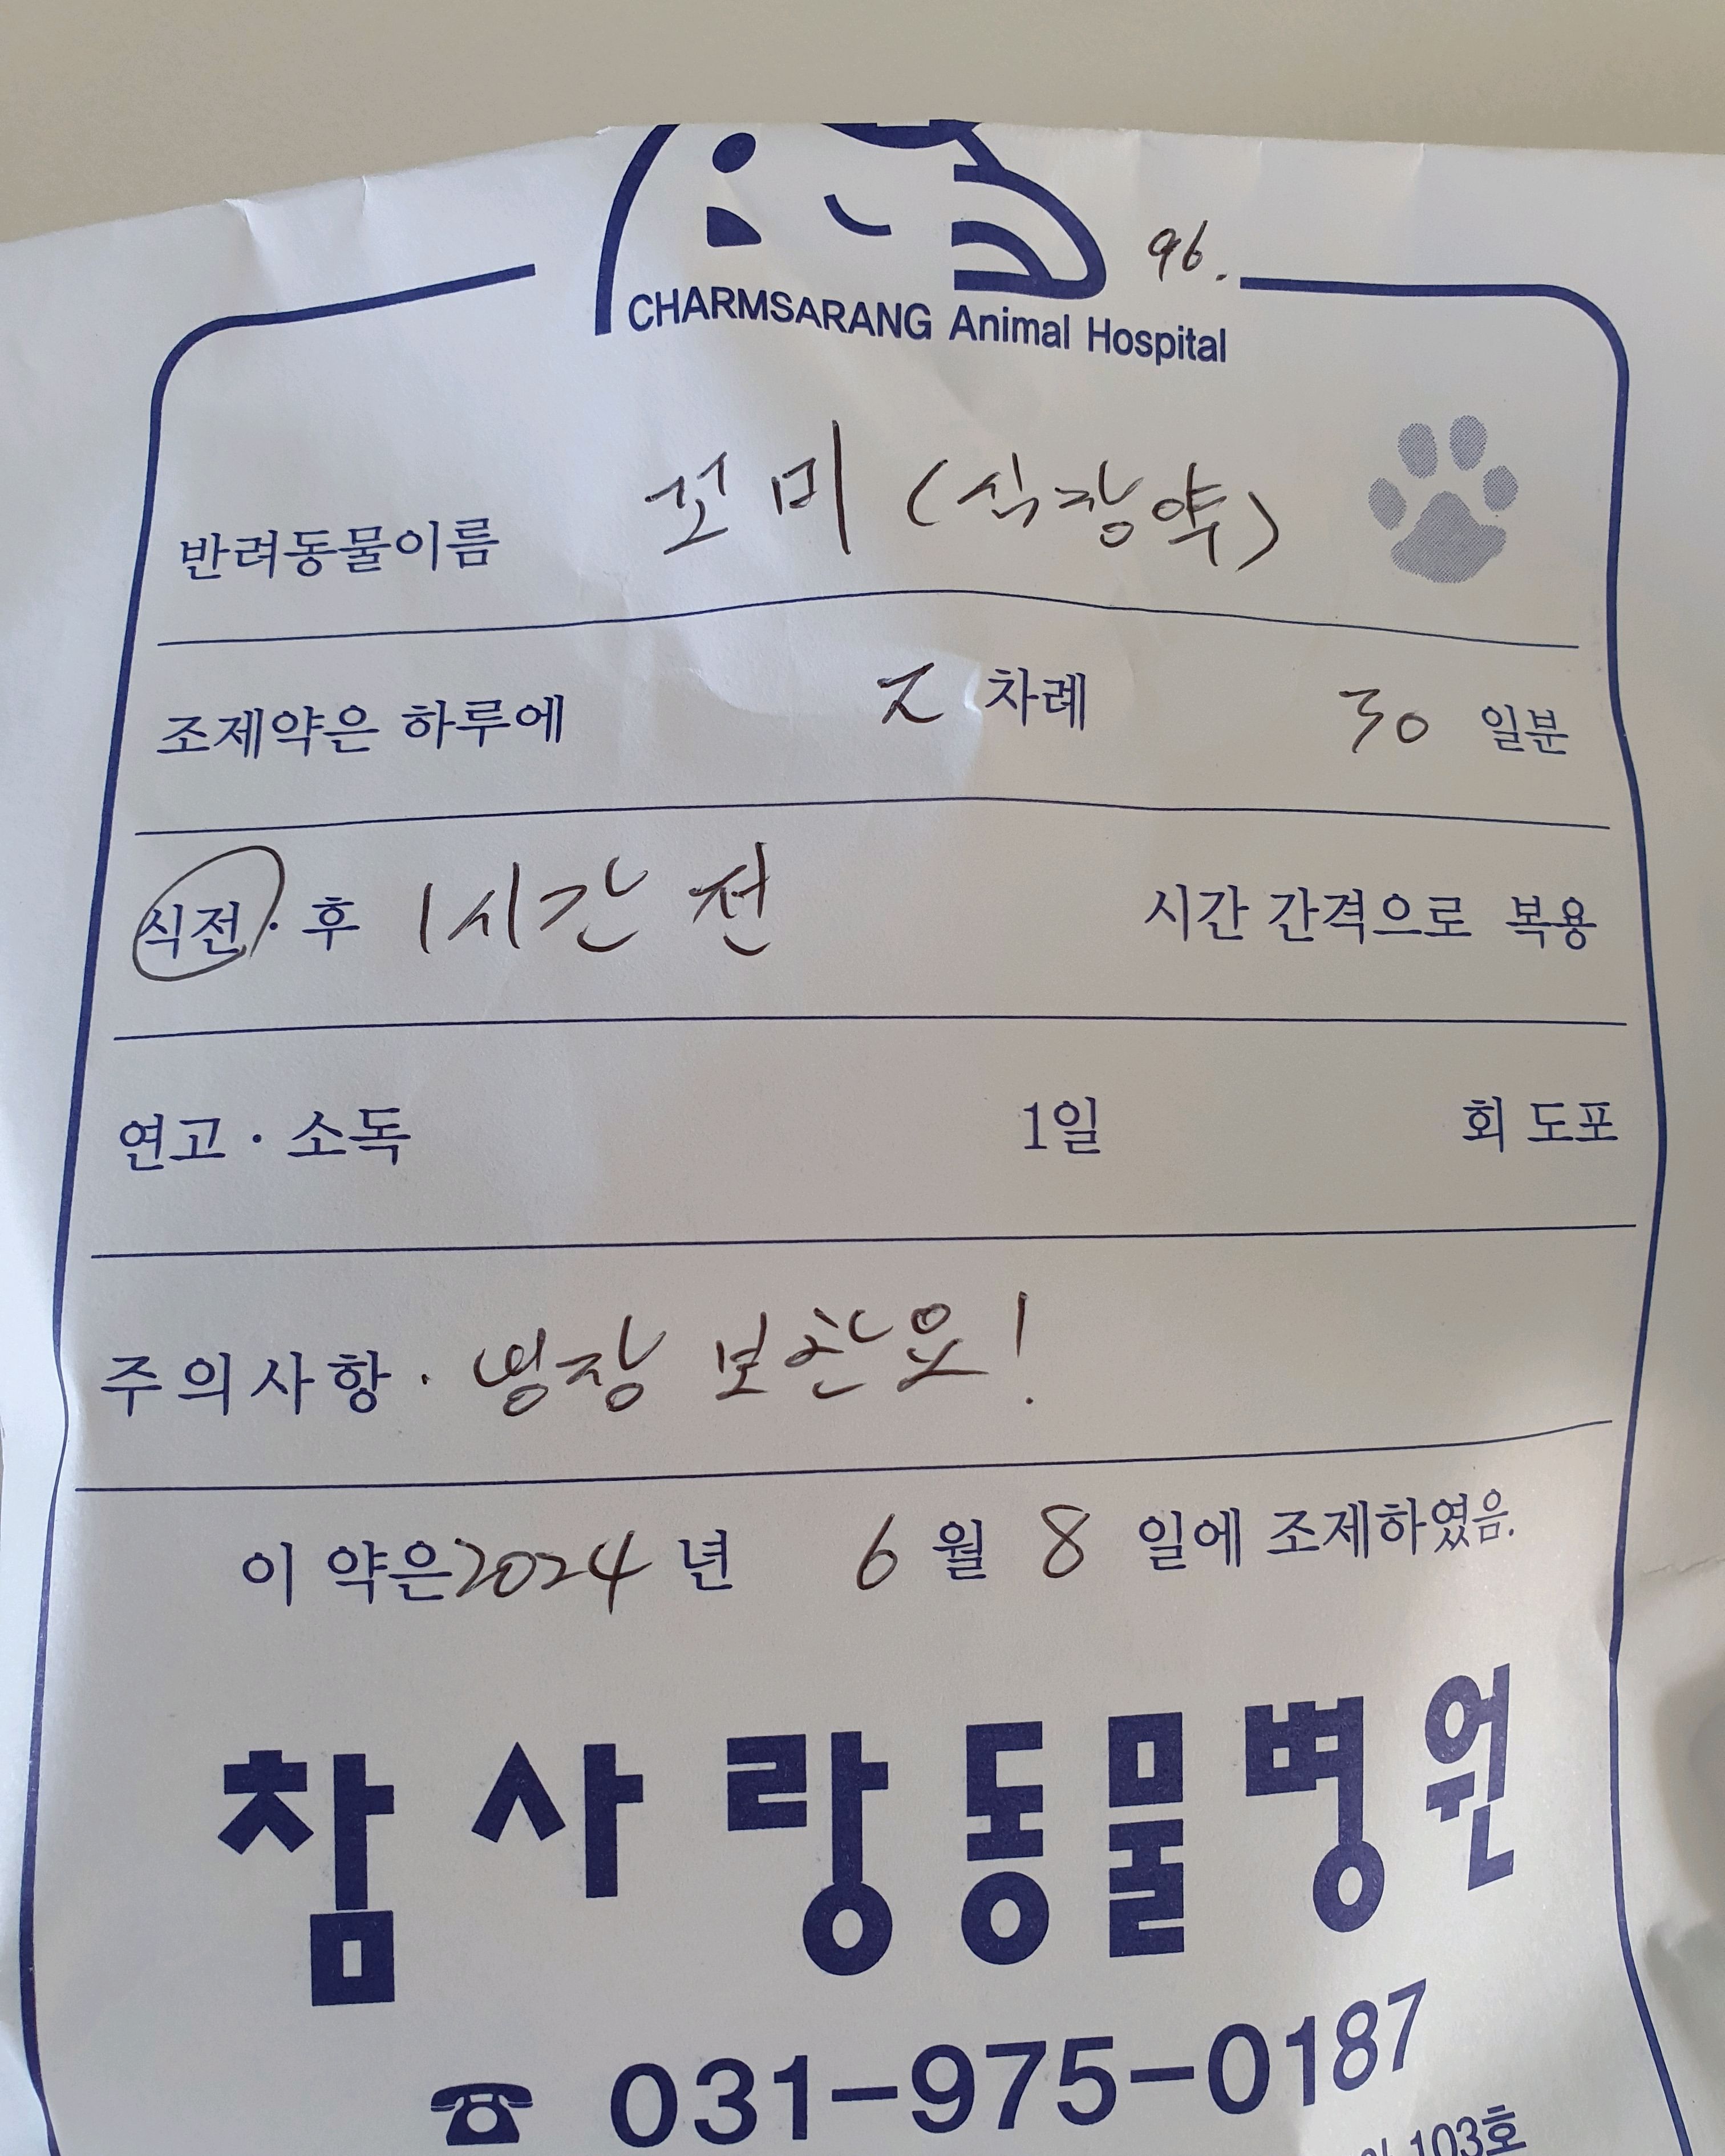 96.
CHARMSARANG Animal Hospital
반려동물이름 꼬미 (심장약)
조제약은 하루에 2 차례 30 일분
식전 · 후 1시간 전 시간 간격으로 복용
연고 · 소독 1일 회 도포
주의사항 · 냉장 보관요!
이 약은 2024 년 6 월 8 일에 조제하였음.
참사랑동물병원
☎ 031-975-0187
103호